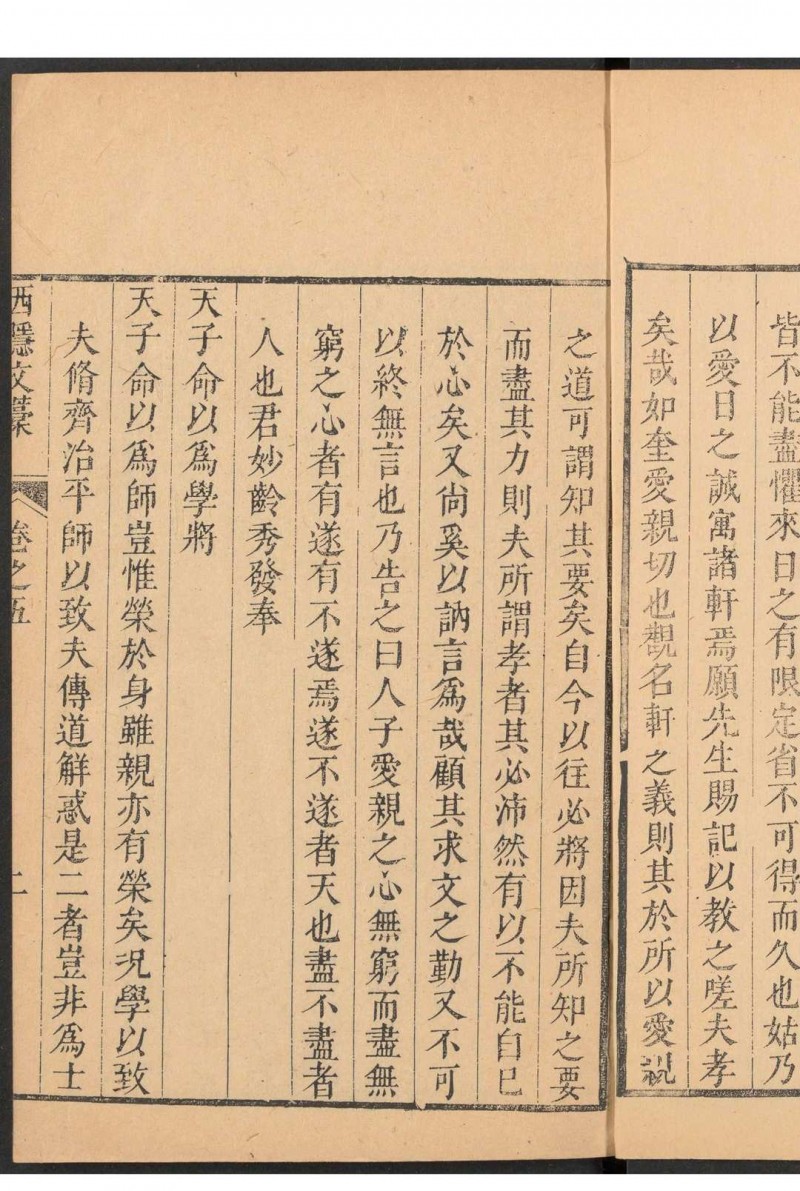 皆不能盡懼來日之有限定省不可得而久也姑乃
以愛日之誠寓諸軒焉願先生賜記以教之嗟夫孝
矣哉如奎愛親切也觀名軒之義則其於所以愛親
之道可謂知其要矣自今以往必將因夫所知之要
而盡其力則夫所謂孝者其必沛然有以不能自已
於心矣又尙奚以訥言爲哉顧其求文之勤又不可
以終無言也乃告之曰人子愛親之心無窮而盡無
窮之心者有遂有不遂焉遂不遂者天也盡不盡者
人也君妙齡秀發奉
天子命以爲學將
天子命以爲師豈惟榮於身雖親亦有榮矣况學以致
夫脩齊治平師以致夫傳道解惑是二者豈非爲士
西隱文藁 卷之五 二